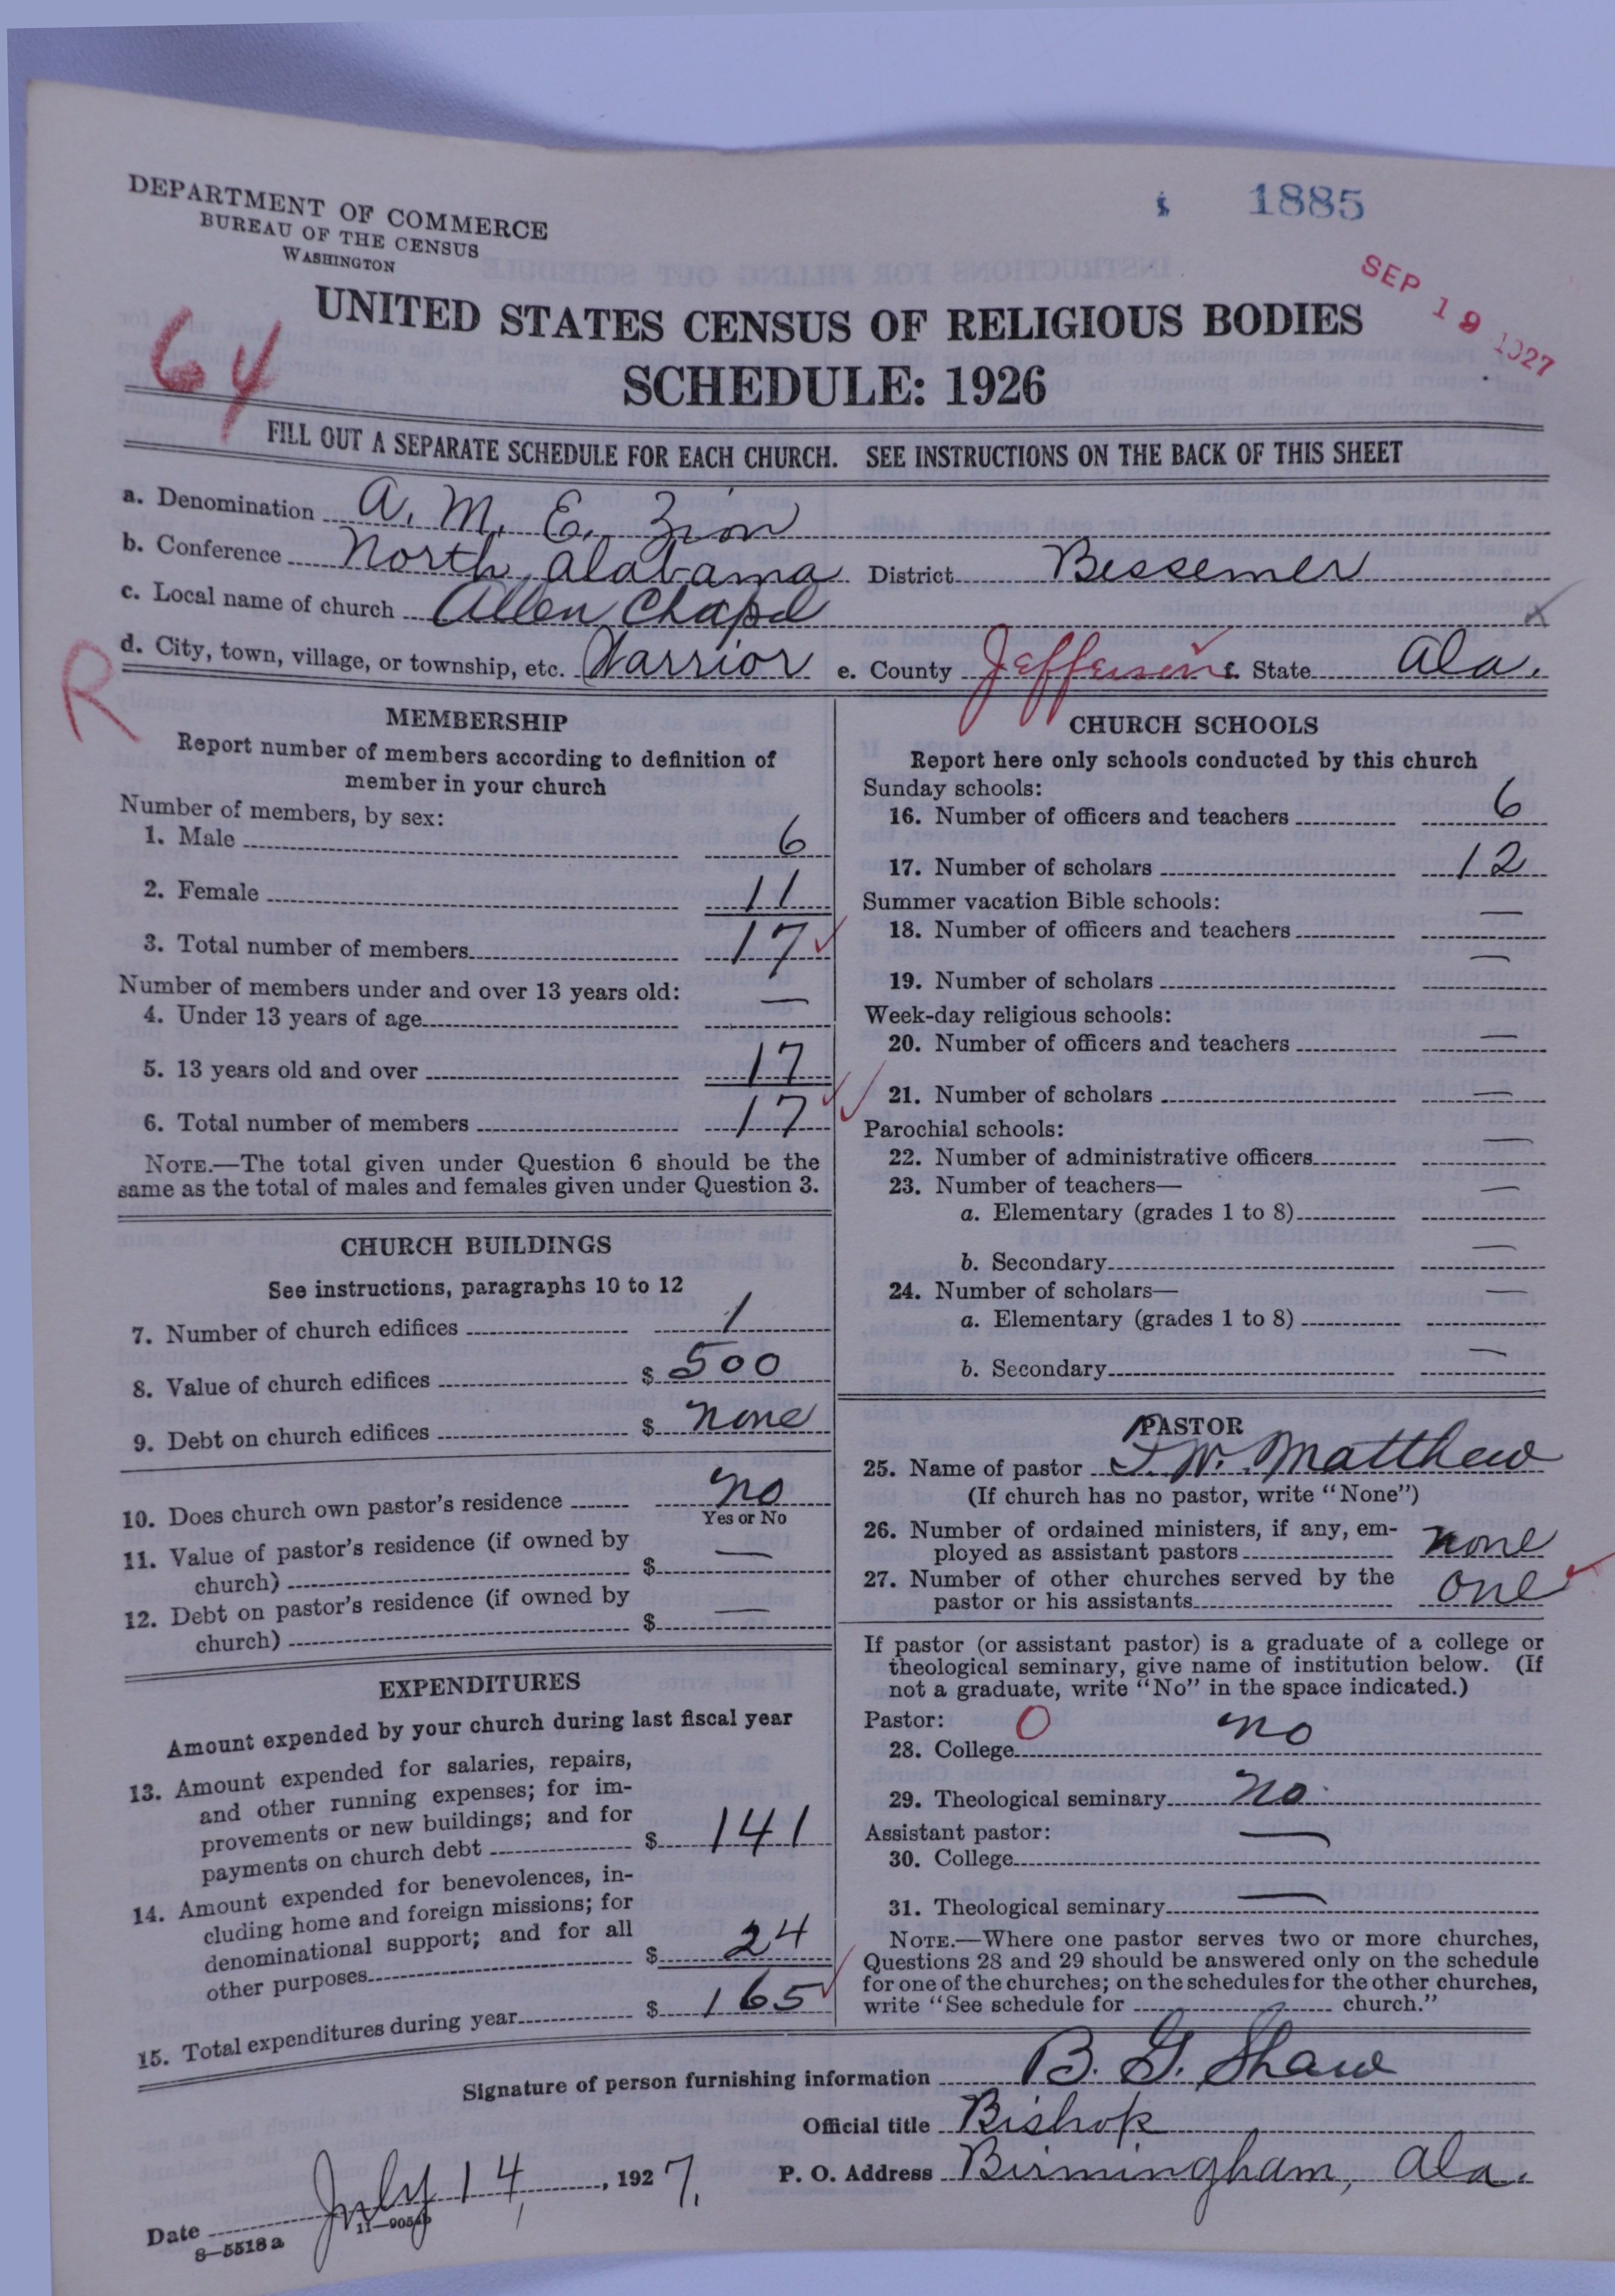 DEPARTMENT OF COMMERCE
BUREAU OF THE CENSUS
WASHINGTON
1885
SEP 19 1927
64
UNITED STATES CENSUS OF RELIGIOUS BODIES
SCHEDULE: 1926
FILL OUT A SEPARATE SCHEDULE FOR EACH CHURCH. SEE INSTRUCTIONS ON THE BACK OF THIS SHEET
a. Denomination A. M. E. Zion
b. Conference North Alabama District Bessemer
c. Local name of church Allen Chapel
d. City, town, village, or township, etc. Warrior e. County Jefferson f. State Ala.
R
MEMBERSHIP
Report number of members according to definition of
member in your church
Number of members, by sex:
1. Male 6
2. Female 11
3. Total number of members 17
Number of members under and over 13 years old:
4. Under 13 years of age —
5. 13 years old and over 17
6. Total number of members 17
NOTE.—The total given under Question 6 should be the
same as the total of males and females given under Question 3.
CHURCH BUILDINGS
See instructions, paragraphs 10 to 12
7. Number of church edifices 1
8. Value of church edifices $ 500
9. Debt on church edifices $ none
10. Does church own pastor's residence no
Yes or No
11. Value of pastor's residence (if owned by
church) $ —
12. Debt on pastor's residence (if owned by
church) $ —
EXPENDITURES
Amount expended by your church during last fiscal year
13. Amount expended for salaries, repairs,
and other running expenses; for im-
provements or new buildings; and for
payments on church debt $ 141
14. Amount expended for benevolences, in-
cluding home and foreign missions; for
denominational support; and for all
other purposes $ 24
15. Total expenditures during year $ 165
CHURCH SCHOOLS
Report here only schools conducted by this church
Sunday schools:
16. Number of officers and teachers 6
17. Number of scholars 12
Summer vacation Bible schools:
18. Number of officers and teachers —
19. Number of scholars —
Week-day religious schools:
20. Number of officers and teachers —
21. Number of scholars —
Parochial schools:
22. Number of administrative officers —
23. Number of teachers—
a. Elementary (grades 1 to 8) —
b. Secondary —
24. Number of scholars—
a. Elementary (grades 1 to 8) —
b. Secondary —
PASTOR
25. Name of pastor W. Matthew
(If church has no pastor, write "None")
26. Number of ordained ministers, if any, em-
ployed as assistant pastors none
27. Number of other churches served by the
pastor or his assistants one
If pastor (or assistant pastor) is a graduate of a college or
theological seminary, give name of institution below. (If
not a graduate, write "No" in the space indicated.)
Pastor: 0
28. College no
29. Theological seminary no
Assistant pastor:
30. College —
31. Theological seminary —
NOTE.—Where one pastor serves two or more churches,
Questions 28 and 29 should be answered only on the schedule
for one of the churches; on the schedules for the other churches,
write "See schedule for church."
Signature of person furnishing information B. G. Shaw
Official title Bishop
P. O. Address Birmingham, Ala.
Date July 14, 1927.
8—5518a